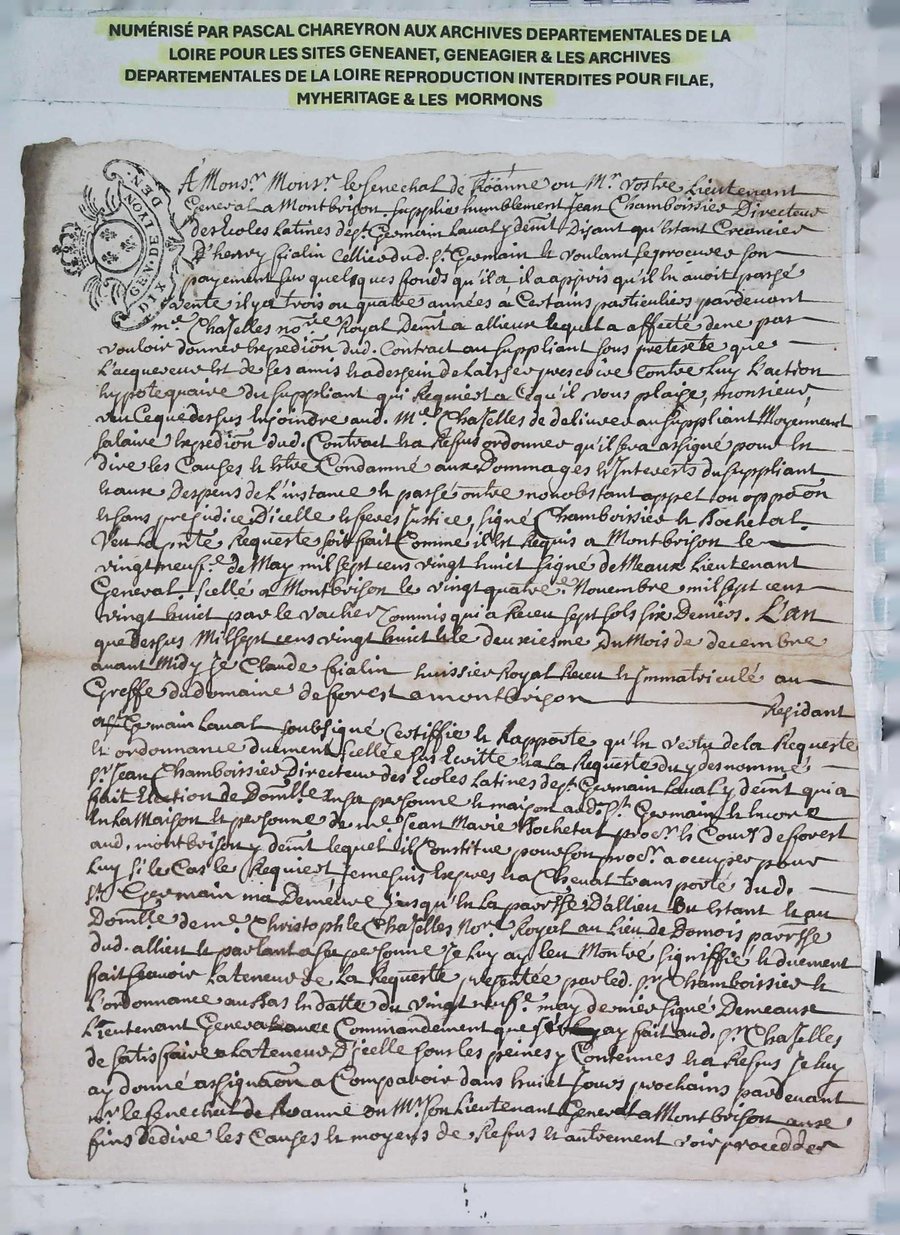 NUMÉRISÉ PAR PASCAL CHAREYRON AUX ARCHIVES DEPARTEMENTALES DE LA
LOIRE POUR LES SITES GENEANET, GENEAGIER & LES ARCHIVES
DEPARTEMENTALES DE LA LOIRE REPRODUCTION INTERDITES POUR FILAE,
MYHERITAGE & LES MORMONS
GEN. DE LYON. DEN.
DIX
A Monsr. Monsr. le senechal de Röanne ou Mr. vostre Lieutenant
General a Montbrison. supplie humblement Jean Chamboissier Directeur
des Ecoles Latines de st. Germain Laval y demt Disant qu'Estant Creancier
D'henry fialin Cellier dud. st. Germain et voulant se procurer son
payement sur quelsques fonds qu'il a, il a appris qu'il En avoit passé
vente il y a trois ou quatre années a Certains particuliers pardevant
me. Chaselles nore. Royal Demt a allieux lequel a affecté de ne pas
vouloir donner Expedion dud. Contract au suppliant sous pretexte que
L'acquereur Est de ses amis Et a dessein de laisser prescrire Contre Luy L'action
hypotequaire du suppliant qui Requiert a Cequ'il vous plaise, monsieur,
veu Ceque dessus Enjoindre aud. Me. Chaselles de delivrer au suppliant Moyennant
salaire Expedion dud. Contract Et a Refus ordonner qu'il sera assigné pour En
dire les Causes Et Estre Condamné aux Dommages Et Interests du suppliant
Et aux Despens de L'instance Et passé outre nonobstant appel ou oppoon
Et sans prejudice D'icelle Et feres Justice, signé Chamboissier Et Rochetal.
Veu La pnte Requeste soit fait Comme il Est Requis a Montbrison le
vingt neufe. de May mil sept cens vingt huict signé de Meaux Lieutenant
General. scellé a Montbrison le vingt quatre e. Novembre mil sept cens
vingt huict par le vacher Commis qui a Receu sept sols six Deniers. L'an
que dessus Mil sept cens vingt huict Et le deuxiesme Du Mois de decembre
avant Midy Je Claude fialin huissier Royal Receu Et Immatriculé au
Greffe du domaine de forest a montbrison Residant
a st. Germain Laval soubsigné Certiffie Et Rapporte qu'En vertu de la Requeste
Et ordonnance duement scellée sus Ecritte Et a la Requeste du y desnommé
sr. Jean Chamboissier Directeur des Ecoles Latines de st. Germain Laval y demt qui a
fait Election de Domlle En sa personne Et maison aud. st. Germain Et Encore
En La Maison Et personne de me. Jean Marie Rochetal procr. Es Cours de forest
aud. montbrison y demt lequel il Constitue pour son procr. a occuper pour
Luy si le Cas le Requiert Je me suis Expres Et a Cheval transporté dud.
st. Germain ma Demeure jusqu'En La parroisse D'allieu ou Estant Et au
Domlle de me. Christophle Chaselles Nore. Royal au Lieu de Domois parroisse
dud. allieu Et parlant a sa personne Je luy ay Leu Montré signiffié Et duement
fait scavoir La teneur de La Requeste presentée par led. sr. Chamboissier Et
L'ordonnance au bas En datte du vingt neufe. may dernier signé Demeaux
Lieutenant General avec Commandement que ay fait aud. sr. Chaselles
de satisfaire a La teneur D'icelle sous les peines y Contenues Et a Refus Je luy
ay donné assignaon a Comparoir dans huict Jours prochains pardevant
mr. le senechal de Roanne ou Mr. son Lieutenant General a Montbrison aux
fins de dire les Causes Et moyens de Refus Et autrement voir procedder